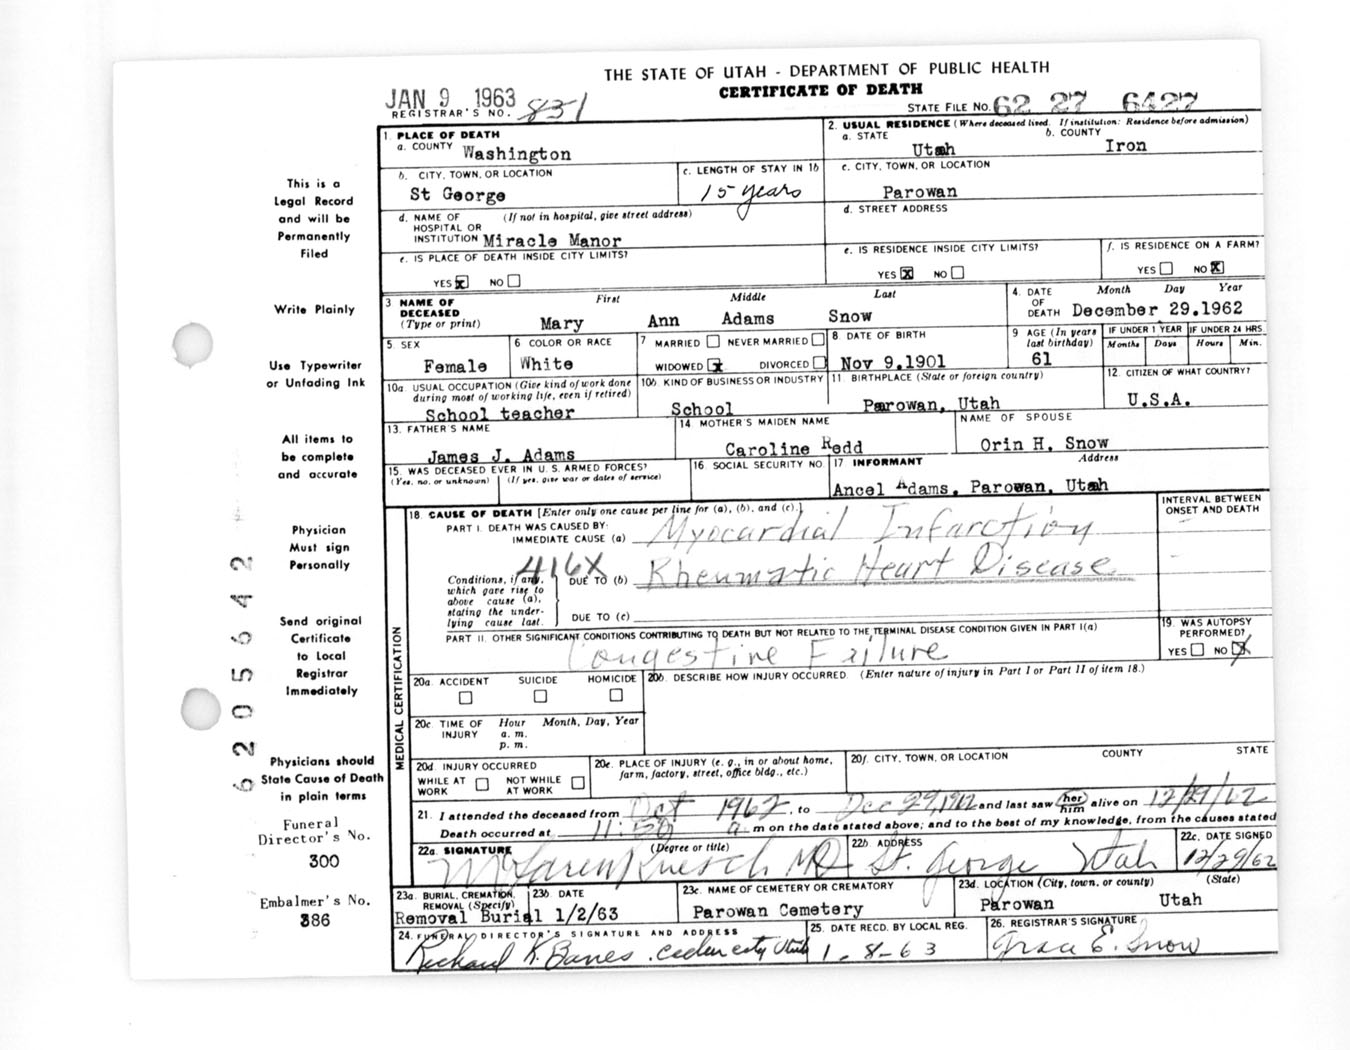 THE STATE OF UTAH - DEPARTMENT OF PUBLIC HEALTH
CERTIFICATE OF DEATH
JAN 9 1963
REGISTRAR'S NO. 831
STATE FILE NO. 62 27 6427
This is a
Legal Record
and will be
Permanently
Filed
Write Plainly
Use Typewriter
or Unfading Ink
All items to
be complete
and accurate
Physician
Must sign
Personally
Send original
Certificate
to Local
Registrar
Immediately
Physicians should
State Cause of Death
in plain terms
Funeral
Director's No.
300
Embalmer's No.
386
6205642
1. PLACE OF DEATH
a. COUNTY Washington
2. USUAL RESIDENCE (Where deceased lived. If institution: Residence before admission)
a. STATE Utah b. COUNTY Iron
b. CITY, TOWN, OR LOCATION St George
c. LENGTH OF STAY IN 1b 15 years
c. CITY, TOWN, OR LOCATION Parowan
d. NAME OF HOSPITAL OR INSTITUTION (If not in hospital, give street address) Miracle Manor
d. STREET ADDRESS
e. IS PLACE OF DEATH INSIDE CITY LIMITS? YES X NO
e. IS RESIDENCE INSIDE CITY LIMITS? YES X NO
f. IS RESIDENCE ON A FARM? YES NO X
3 NAME OF DECEASED (Type or print) First Middle Last
Mary Ann Adams Snow
4. DATE OF DEATH Month Day Year
December 29.1962
5. SEX Female
6 COLOR OR RACE White
7 MARRIED NEVER MARRIED
WIDOWED X DIVORCED
8. DATE OF BIRTH Nov 9.1901
9 AGE (In years last birthday) 61
IF UNDER 1 YEAR Months Days
IF UNDER 24 HRS. Hours Min.
10a. USUAL OCCUPATION (Give kind of work done during most of working life, even if retired) School teacher
10b. KIND OF BUSINESS OR INDUSTRY School
11 BIRTHPLACE (State or foreign country) Parowan, Utah
12. CITIZEN OF WHAT COUNTRY? U.S.A.
13. FATHER'S NAME James J. Adams
14 MOTHER'S MAIDEN NAME Caroline Redd
NAME OF SPOUSE Orin H. Snow
15. WAS DECEASED EVER IN U.S. ARMED FORCES?
(Yes, no. or unknown) (If yes, give war or dates of service)
16. SOCIAL SECURITY NO.
17 INFORMANT Address
Ancel Adams, Parowan, Utah
MEDICAL CERTIFICATION
18 CAUSE OF DEATH [Enter only one cause per line for (a), (b), and (c).]
INTERVAL BETWEEN ONSET AND DEATH
PART I. DEATH WAS CAUSED BY:
IMMEDIATE CAUSE (a) Myocardial Infarction
416X
Conditions, if any, which gave rise to above cause (a), stating the underlying cause last.
DUE TO (b) Rheumatic Heart Disease
DUE TO (c)
PART II. OTHER SIGNIFICANT CONDITIONS CONTRIBUTING TO DEATH BUT NOT RELATED TO THE TERMINAL DISEASE CONDITION GIVEN IN PART I(a)
Congestive Failure
19 WAS AUTOPSY PERFORMED?
YES NO X
20a. ACCIDENT SUICIDE HOMICIDE
20b. DESCRIBE HOW INJURY OCCURRED. (Enter nature of injury in Part I or Part II of item 18.)
20c. TIME OF INJURY Hour Month, Day, Year
a. m.
p. m.
20d. INJURY OCCURRED
WHILE AT WORK NOT WHILE AT WORK
20e. PLACE OF INJURY (e. g., in or about home, farm, factory, street, office bldg., etc.)
20f. CITY, TOWN, OR LOCATION COUNTY STATE
21. I attended the deceased from Oct 1962, to Dec 29, 1962 and last saw her him alive on 12/29/62
Death occurred at 11:50 a m on the date stated above; and to the best of my knowledge, from the causes stated
22a. SIGNATURE (Degree or title) MD
22b. ADDRESS St. George Utah
22c. DATE SIGNED 12/29/62
23a. BURIAL, CREMATION, REMOVAL (Specify) Removal Burial
23b. DATE 1/2/63
23c. NAME OF CEMETERY OR CREMATORY Parowan Cemetery
23d. LOCATION (City, town, or county) (State)
Parowan Utah
24. FUNERAL DIRECTOR'S SIGNATURE AND ADDRESS
Richard K. Banes. Cedar City Utah
25. DATE RECD. BY LOCAL REG. 1-8-63
26. REGISTRAR'S SIGNATURE
E. Snow